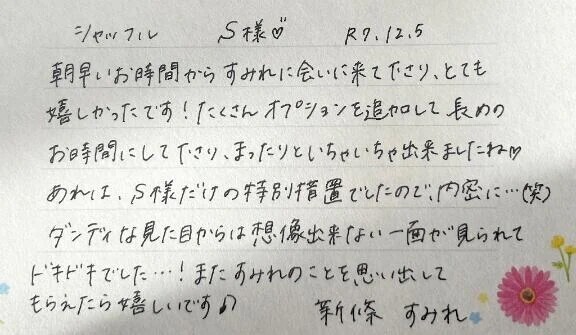 シャッフル S様♡ R7.12.5
朝早いお時間からすみれに会いに来て下さり、とても
嬉しかったです！たくさんオプションを追加して長めの
お時間にして下さり、まったりといちゃいちゃ出来ましたね♡
あれは、S様だけの特別措置でしたので、内密に…(笑)
ダンディな見た目からは想像出来ない一面が見られて
ドキドキでした…！またすみれのことを思い出して
もらえたら嬉しいです♪ 新條 すみれ